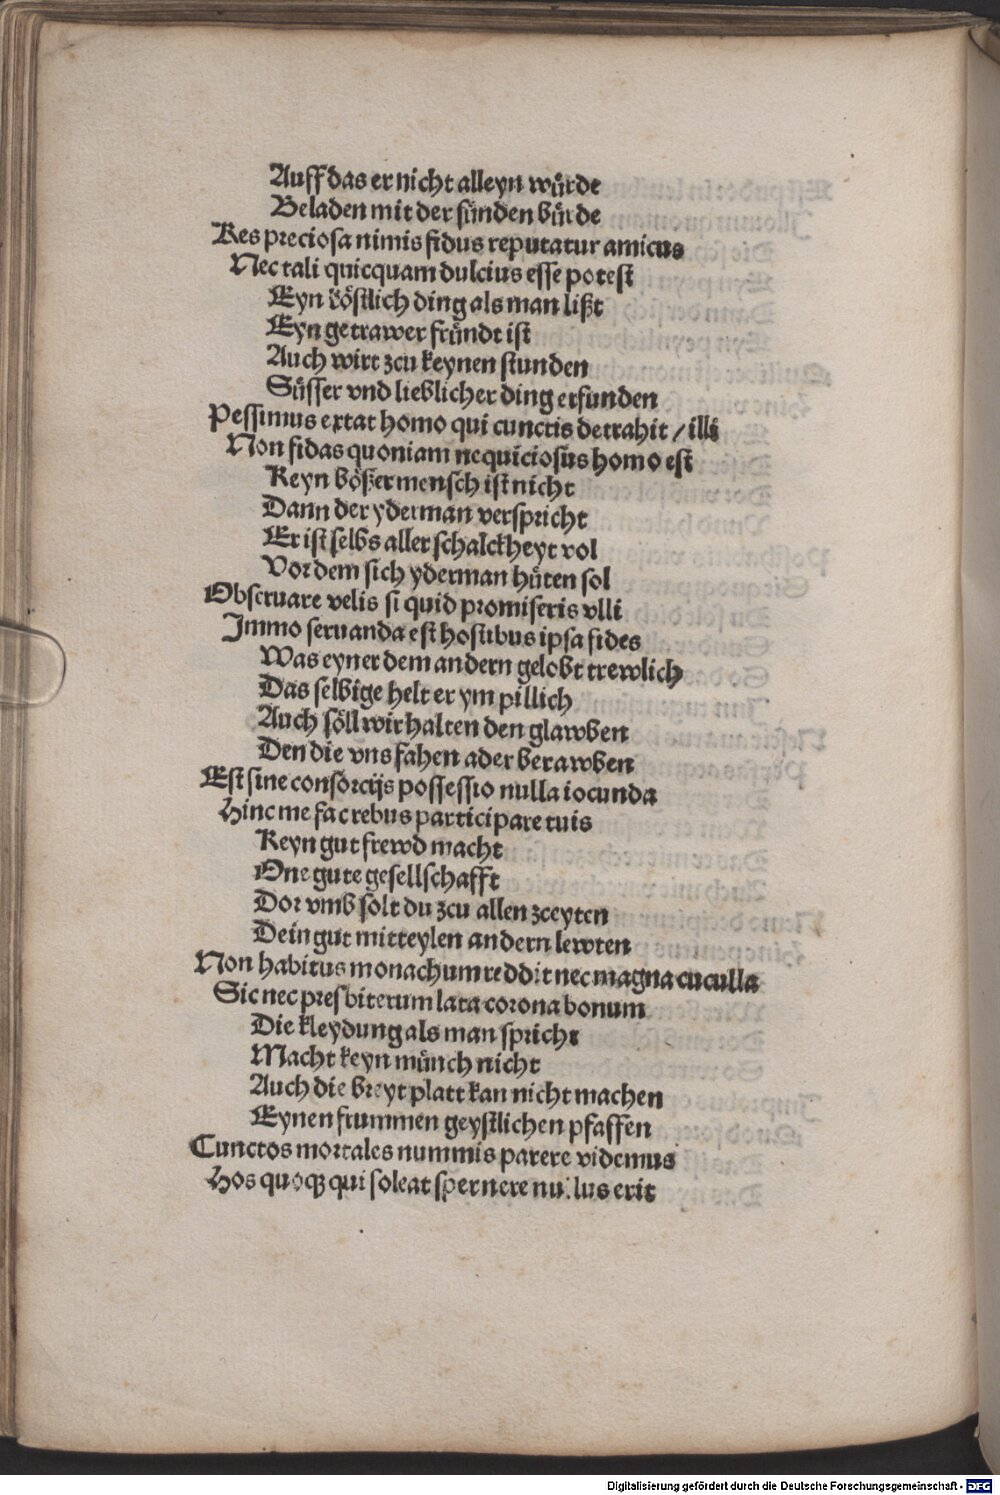 Auff das er nicht alleyn würde
Beladen mit der sünden bürde
Res preciosa nimis fidus reputatur amicus
Nec tali quicquam dulcius esse potest
Eyn köstlich ding als man lißt
Eyn getrawer fründt ist
Auch wirt zcu keynen stunden
Süsser vnd lieblicher ding erfunden
Pessimus extat homo qui cunctis detrahit / illi
Non fidas quoniam nequiciosus homo est
Keyn bößer mensch ist nicht
Dann der yderman verspricht
Er ist selbs aller schalckheyt vol
Vor dem sich yderman hüten sol
Obseruare velis si quid promiseris vlli
Immo seruanda est hostibus ipsa fides
Was eyner dem andern gelobt trewlich
Das selbige helt er ym pillich
Auch söll wir halten den glawben
Den die vns fahen ader berawben
Est sine consorcijs possessio nulla iocunda
Hinc me fac rebus participare tuis
Keyn gut frewd macht
One gute gesellschafft
Dor vmb solt du zcu allen zceyten
Dein gut mitteylen andern lewten
Non habitus monachum reddit nec magna cuculla
Sic nec presbiterum lata corona bonum
Die kleydung als man spricht
Macht keyn münch nicht
Auch die breyt platt kan nicht machen
Eynen frummen geystlichen pfaffen
Cunctos mortales nummis parere videmus
Hos quoqꝫ qui soleat spernere nullus erit
Digitalisierung gefördert durch die Deutsche Forschungsgemeinschaft - DFG